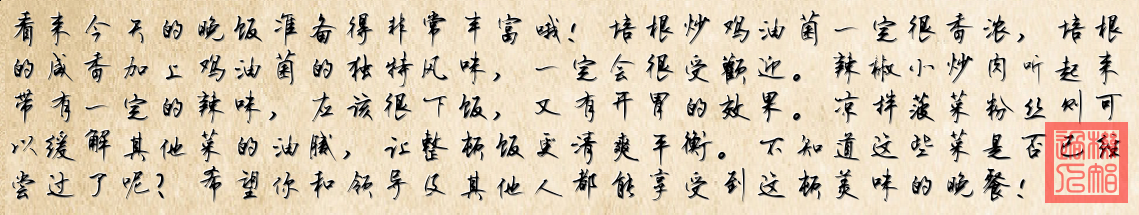 看来今天的晚饭准备得非常丰富哦！培根炒鸡油菌一定很香浓，培根
的咸香加上鸡油菌的独特风味，一定会很受歡迎。辣椒小炒肉听起来
带有一定的辣味，应该很下饭，又有开胃的效果。凉拌菠菜粉丝则可
以缓解其他菜的油腻，让整顿饭更清爽平衡。不知道这些菜是否已经
尝过了呢？希望你和领导及其他人都能享受到这顿美味的晚餐！